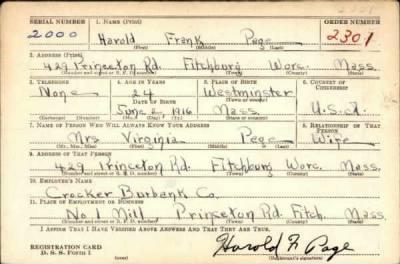 SERIAL NUMBER 1. NAME (Print) ORDER NUMBER
2000 Harold Frank Page 2301
(First) (Middle) (Last)
2. ADDRESS (Print)
429 Princeton Rd. Fitchburg Worc. Mass.
(Number and street or R. F. D. number) (Town) (County) (State)
3. TELEPHONE 4. AGE IN YEARS 5. PLACE OF BIRTH 6. COUNTRY OF CITIZENSHIP
None 24 Westminster
DATE OF BIRTH (Town or county)
June 1916 Mass. U.S.A.
(Exchange) (Number) (Mo.) (Day) (Yr.) (State or country)
7. NAME OF PERSON WHO WILL ALWAYS KNOW YOUR ADDRESS 8. RELATIONSHIP OF THAT PERSON
Mrs Virginia Page Wife
(Mr., Mrs., Miss) (First) (Middle) (Last)
9. ADDRESS OF THAT PERSON
429 Princeton Rd. Fitchburg Worc. Mass.
(Number and street or R. F. D. number) (Town) (County) (State)
10. EMPLOYER'S NAME
Crocker Burbank Co.
11. PLACE OF EMPLOYMENT OR BUSINESS
No. Mill Princeton Rd. Fitch. Mass.
(Number and street or R. F. D. number) (Town) (County) (State)
I AFFIRM THAT I HAVE VERIFIED ABOVE ANSWERS AND THAT THEY ARE TRUE.
REGISTRATION CARD
D. S. S. Form 1 Harold F. Page
(over) (Registrant's signature)